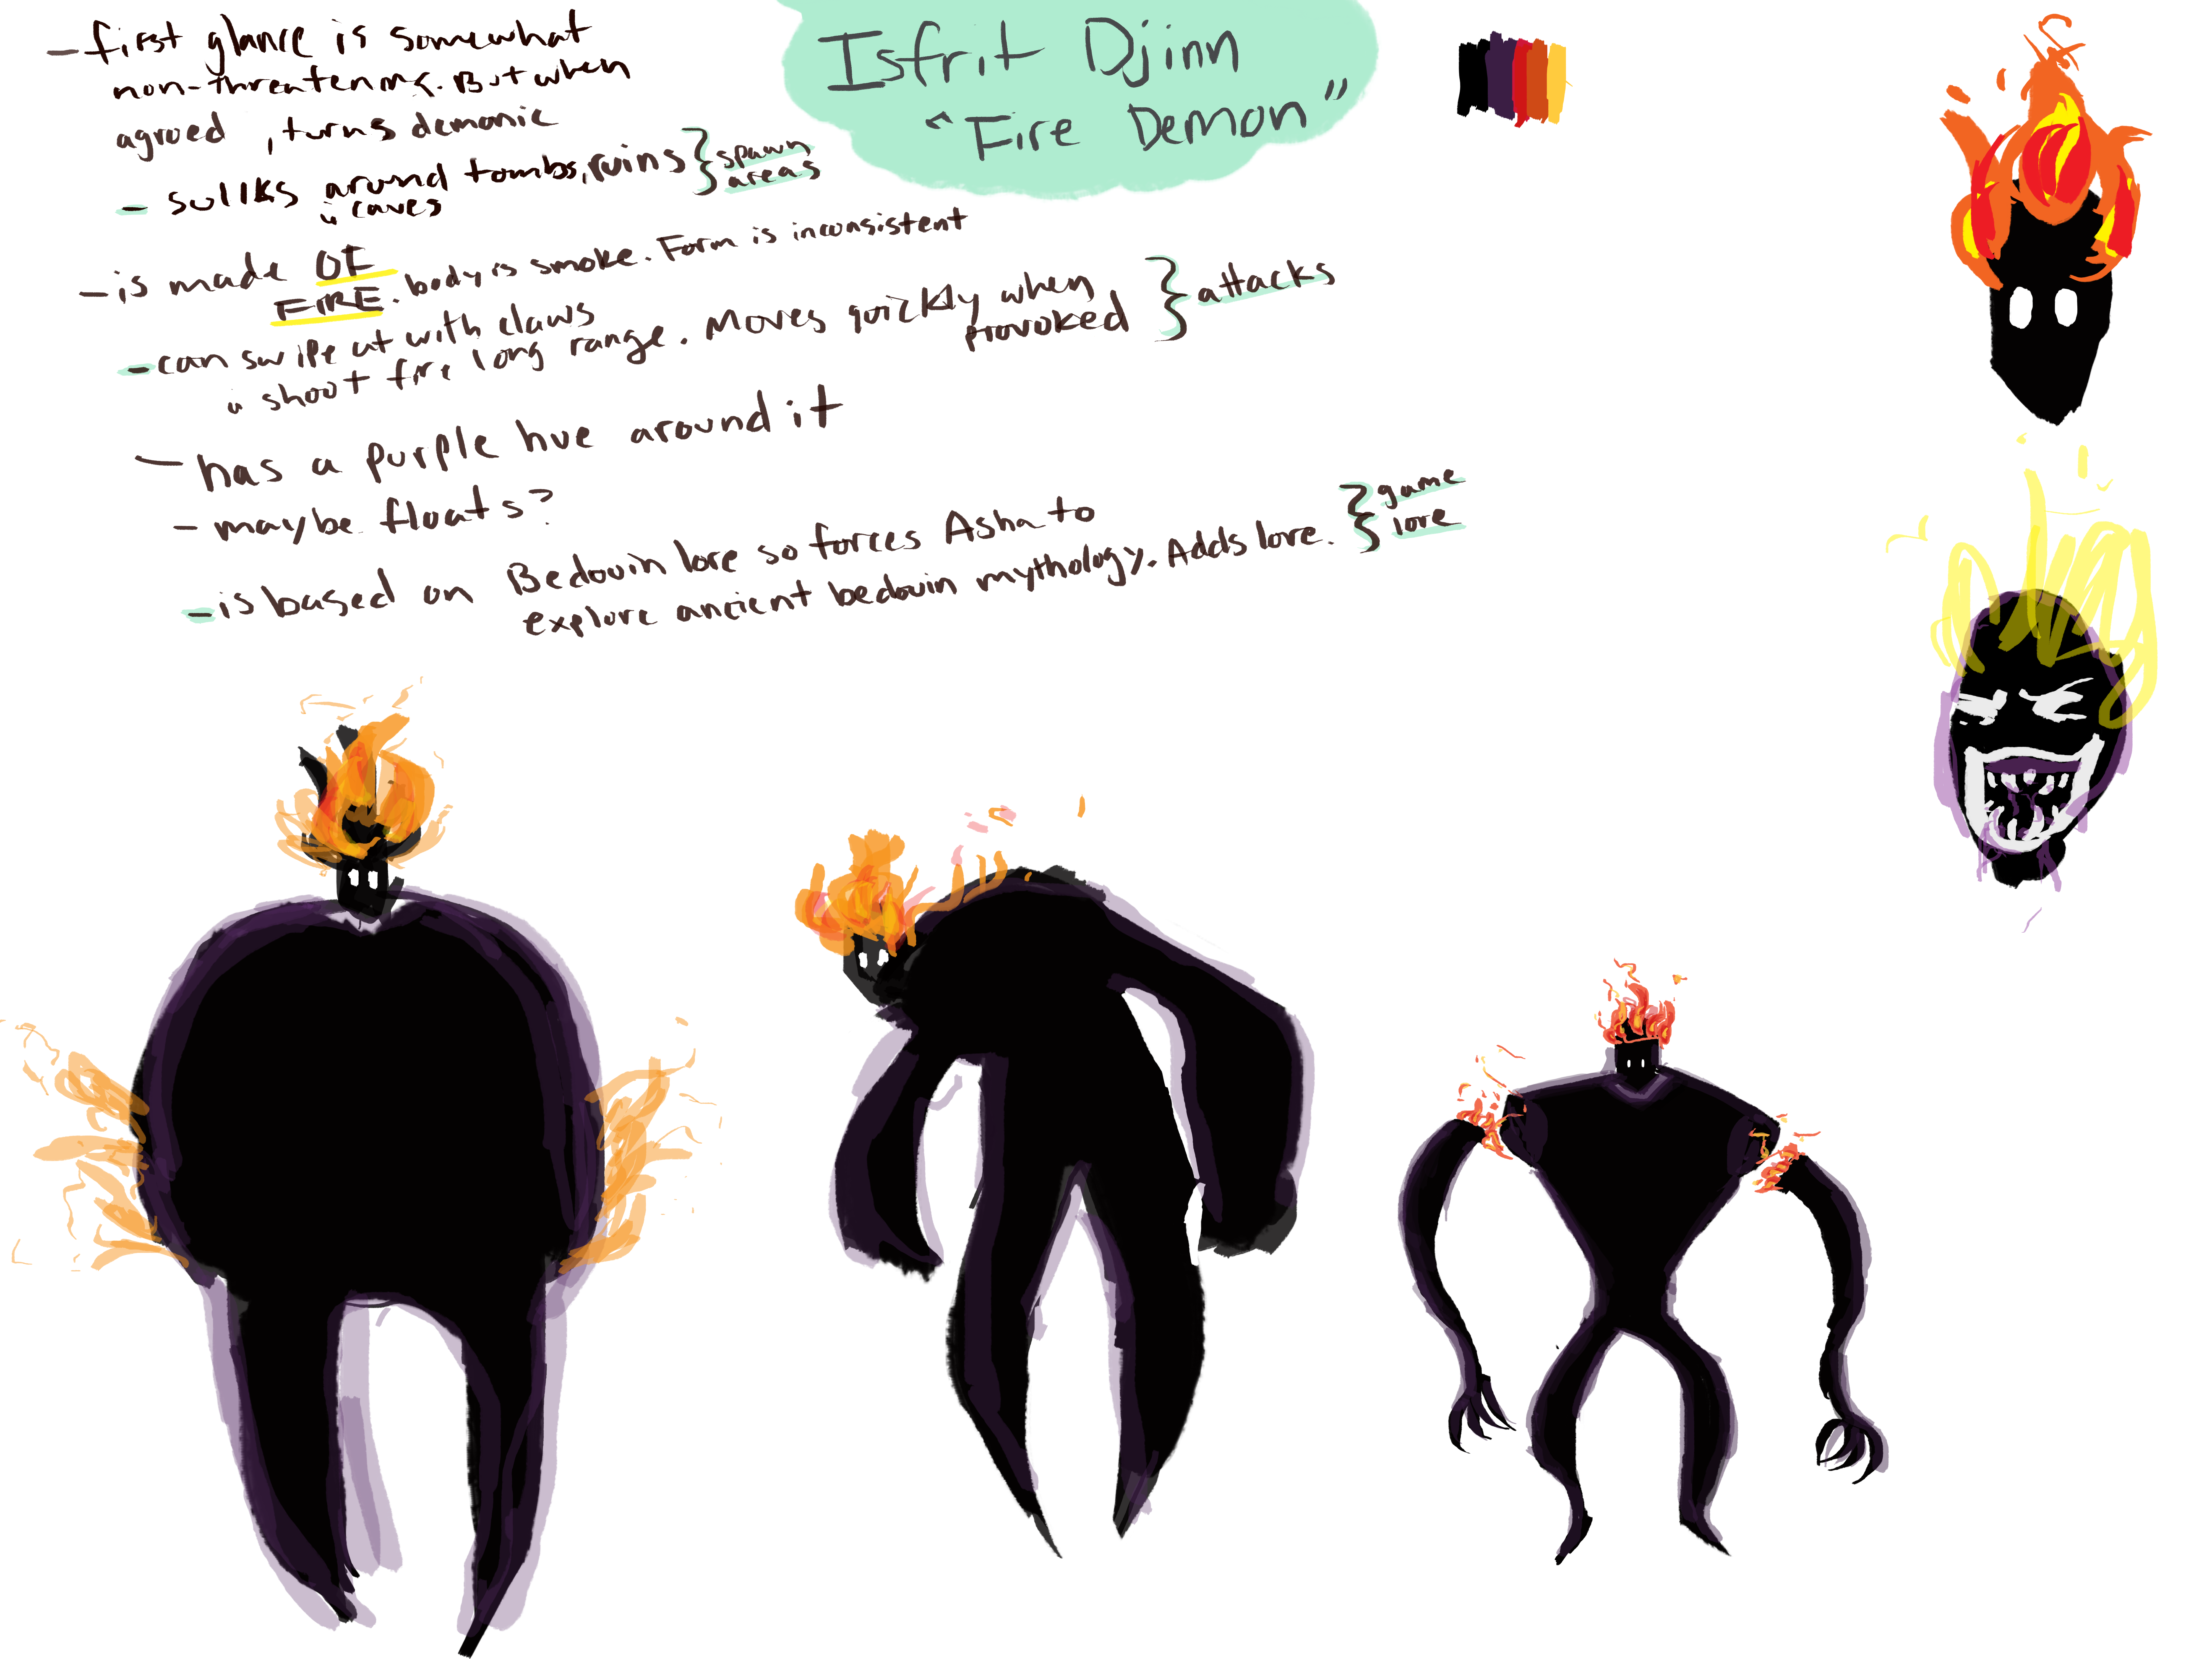 Isfrit Djinn
"Fire Demon"
- first glance is somewhat
non-threatening. But when
agroed, turns demonic
- sulks around tombs, ruins } spawn
& caves areas
- is made OF
FIRE. body is smoke. Form is inconsistent
- can swipe at with claws
& shoot fire long range. Moves quickly when
provoked } attacks
- has a purple hue around it
- maybe floats?
- is based on Bedouin lore so forces Asha to
explore ancient bedouin mythology. Adds lore. } game
lore